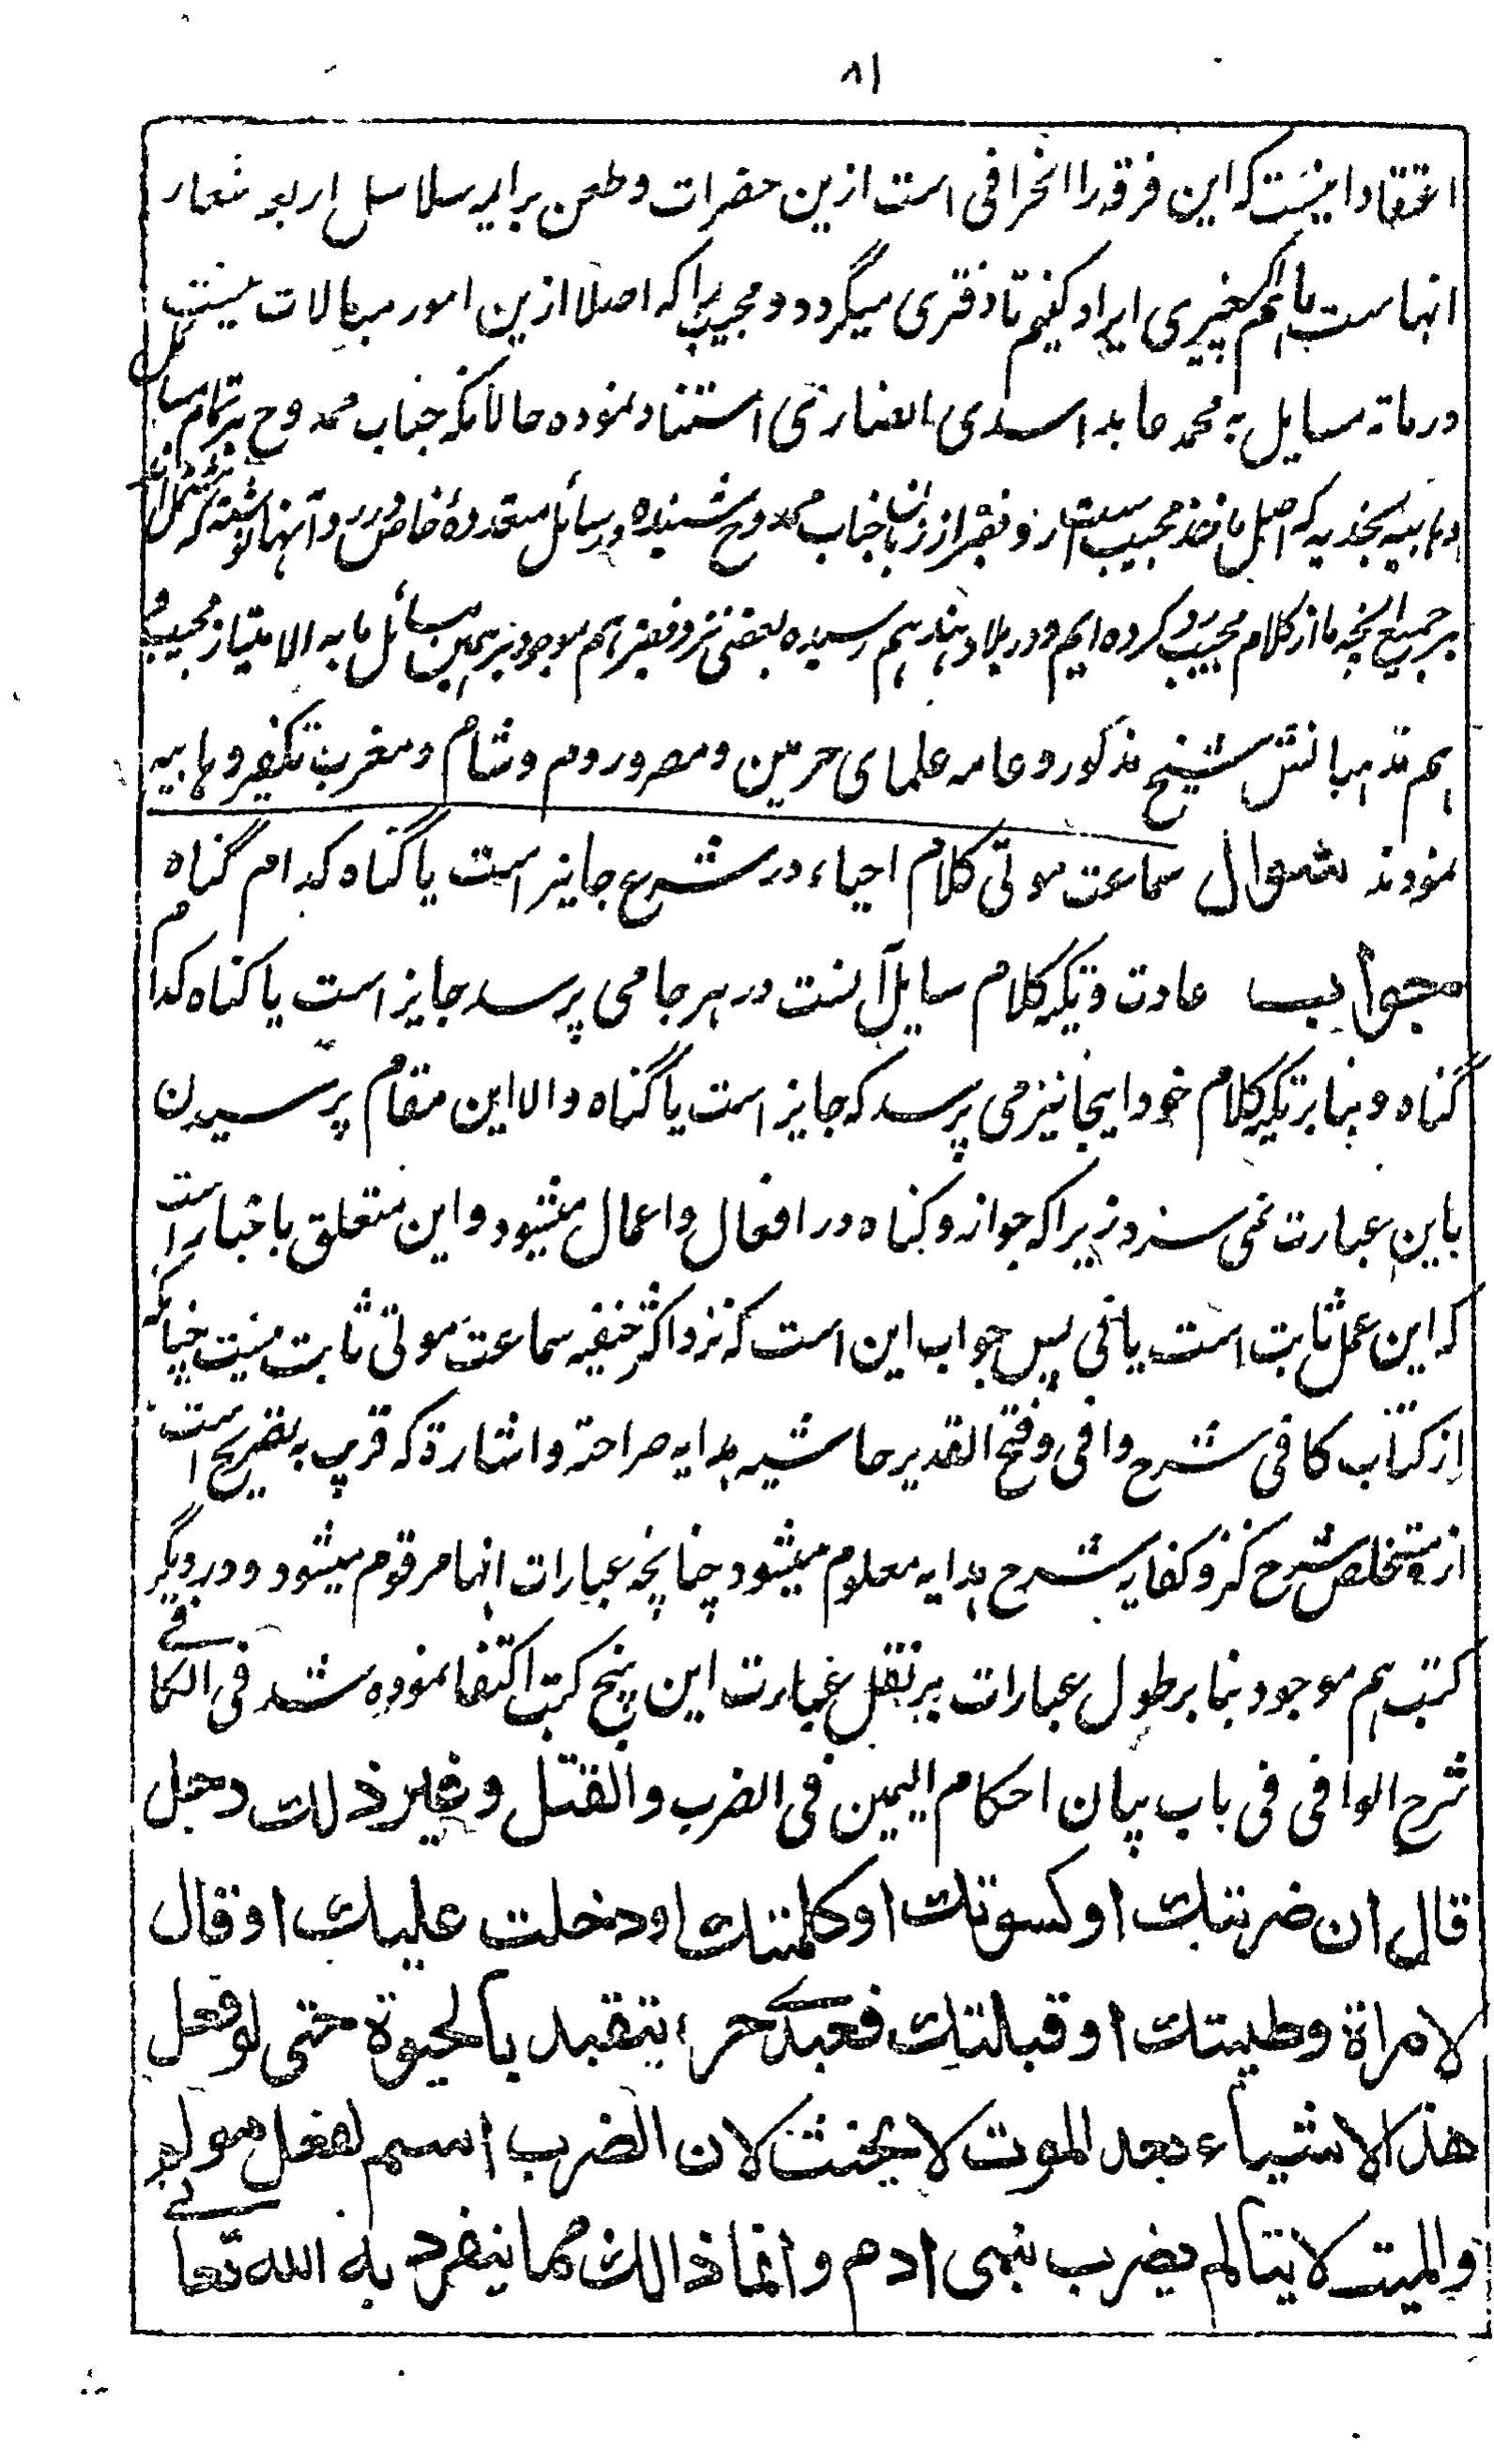 ٨١
اعتقاد اینست که این فرقه را انحرافی است ازین حضرات و طعن بر ایمه سلاسل اربعه شعار
انهاست یا ایراد کنیم تا دفتری میگردد و مجیب را که اصلا ازین امور مبالات نیست
در ماته مسایل به محمد عابد اسدی انصاری استناد نموده حالانکه جناب ممدوح بر تمام مسائل
وهابیه نجدیه که اصل ماخذ مجیب است رو فقیر از زبان جناب ممدوح شنیده و رسائل متعدده خاص در رد آنها نوشته که مشتمل اند
بر جمیع آنچه ما از کلام مجیب رد کرده ایم و در بلاد هند هم رسیده بعضی نزد فقیر هم موجود بر همین مسائل ما به الامتیاز مجیب و
هم مذهبانش شیخ مذکور و عامه علمای حرمین و مصر و روم و شام و مغرب تکفیر وهابیه
نمودند سوال سماعت موتی کلام احیاء در شرع جایز است یا گناه کدام گناه
جواب عادت و تکیه کلام سایل آنست در هر جا می پرسد جایز است یا گناه کدام
گناه و بنا بر تکیه کلام خود اینجا نیز می پرسد که جایز است یا گناه والا این مقام پرسیدن
باین عبارت نمی سزد زیرا که جواز و گناه در افعال و اعمال میشود و این متعلق باخبار است
که این عمل ثابت است یا نی پس جواب این است که نزد اکثر حنفیه سماعت موتی ثابت نیست چنانکه
از کتاب کافی شرح وافی و فتح القدیر حاشیه هدایه صراحته و اشارة که قریب به تصریح است
از مستخلص شرح کنز و کفایه شرح هدایه معلوم میشود چنانچه عبارات انها مرقوم میشود و در دیگر
کتب هم موجود بنا بر طول عبارات بر نقل عبارت این پنج کتب اکتفا نموده شد فی الکافی
شرح الوافی فی باب بیان احکام الیمین فی الضرب والقتل وغیر ذلك رجل
قال ان ضربتك او کسوتك او کلمتك او دخلت علیك او قال
لامراة وطیتك او قبلتك فعبدی حر یتقید بالحیوة حتی لو فعل
هذا الاشیاء بعد الموت لا یحنث لان الضرب اسم لفعل مولم
والمیت لا یتالم بضرب بنی ادم وانما ذالك مما ینفرد به الله تعالی